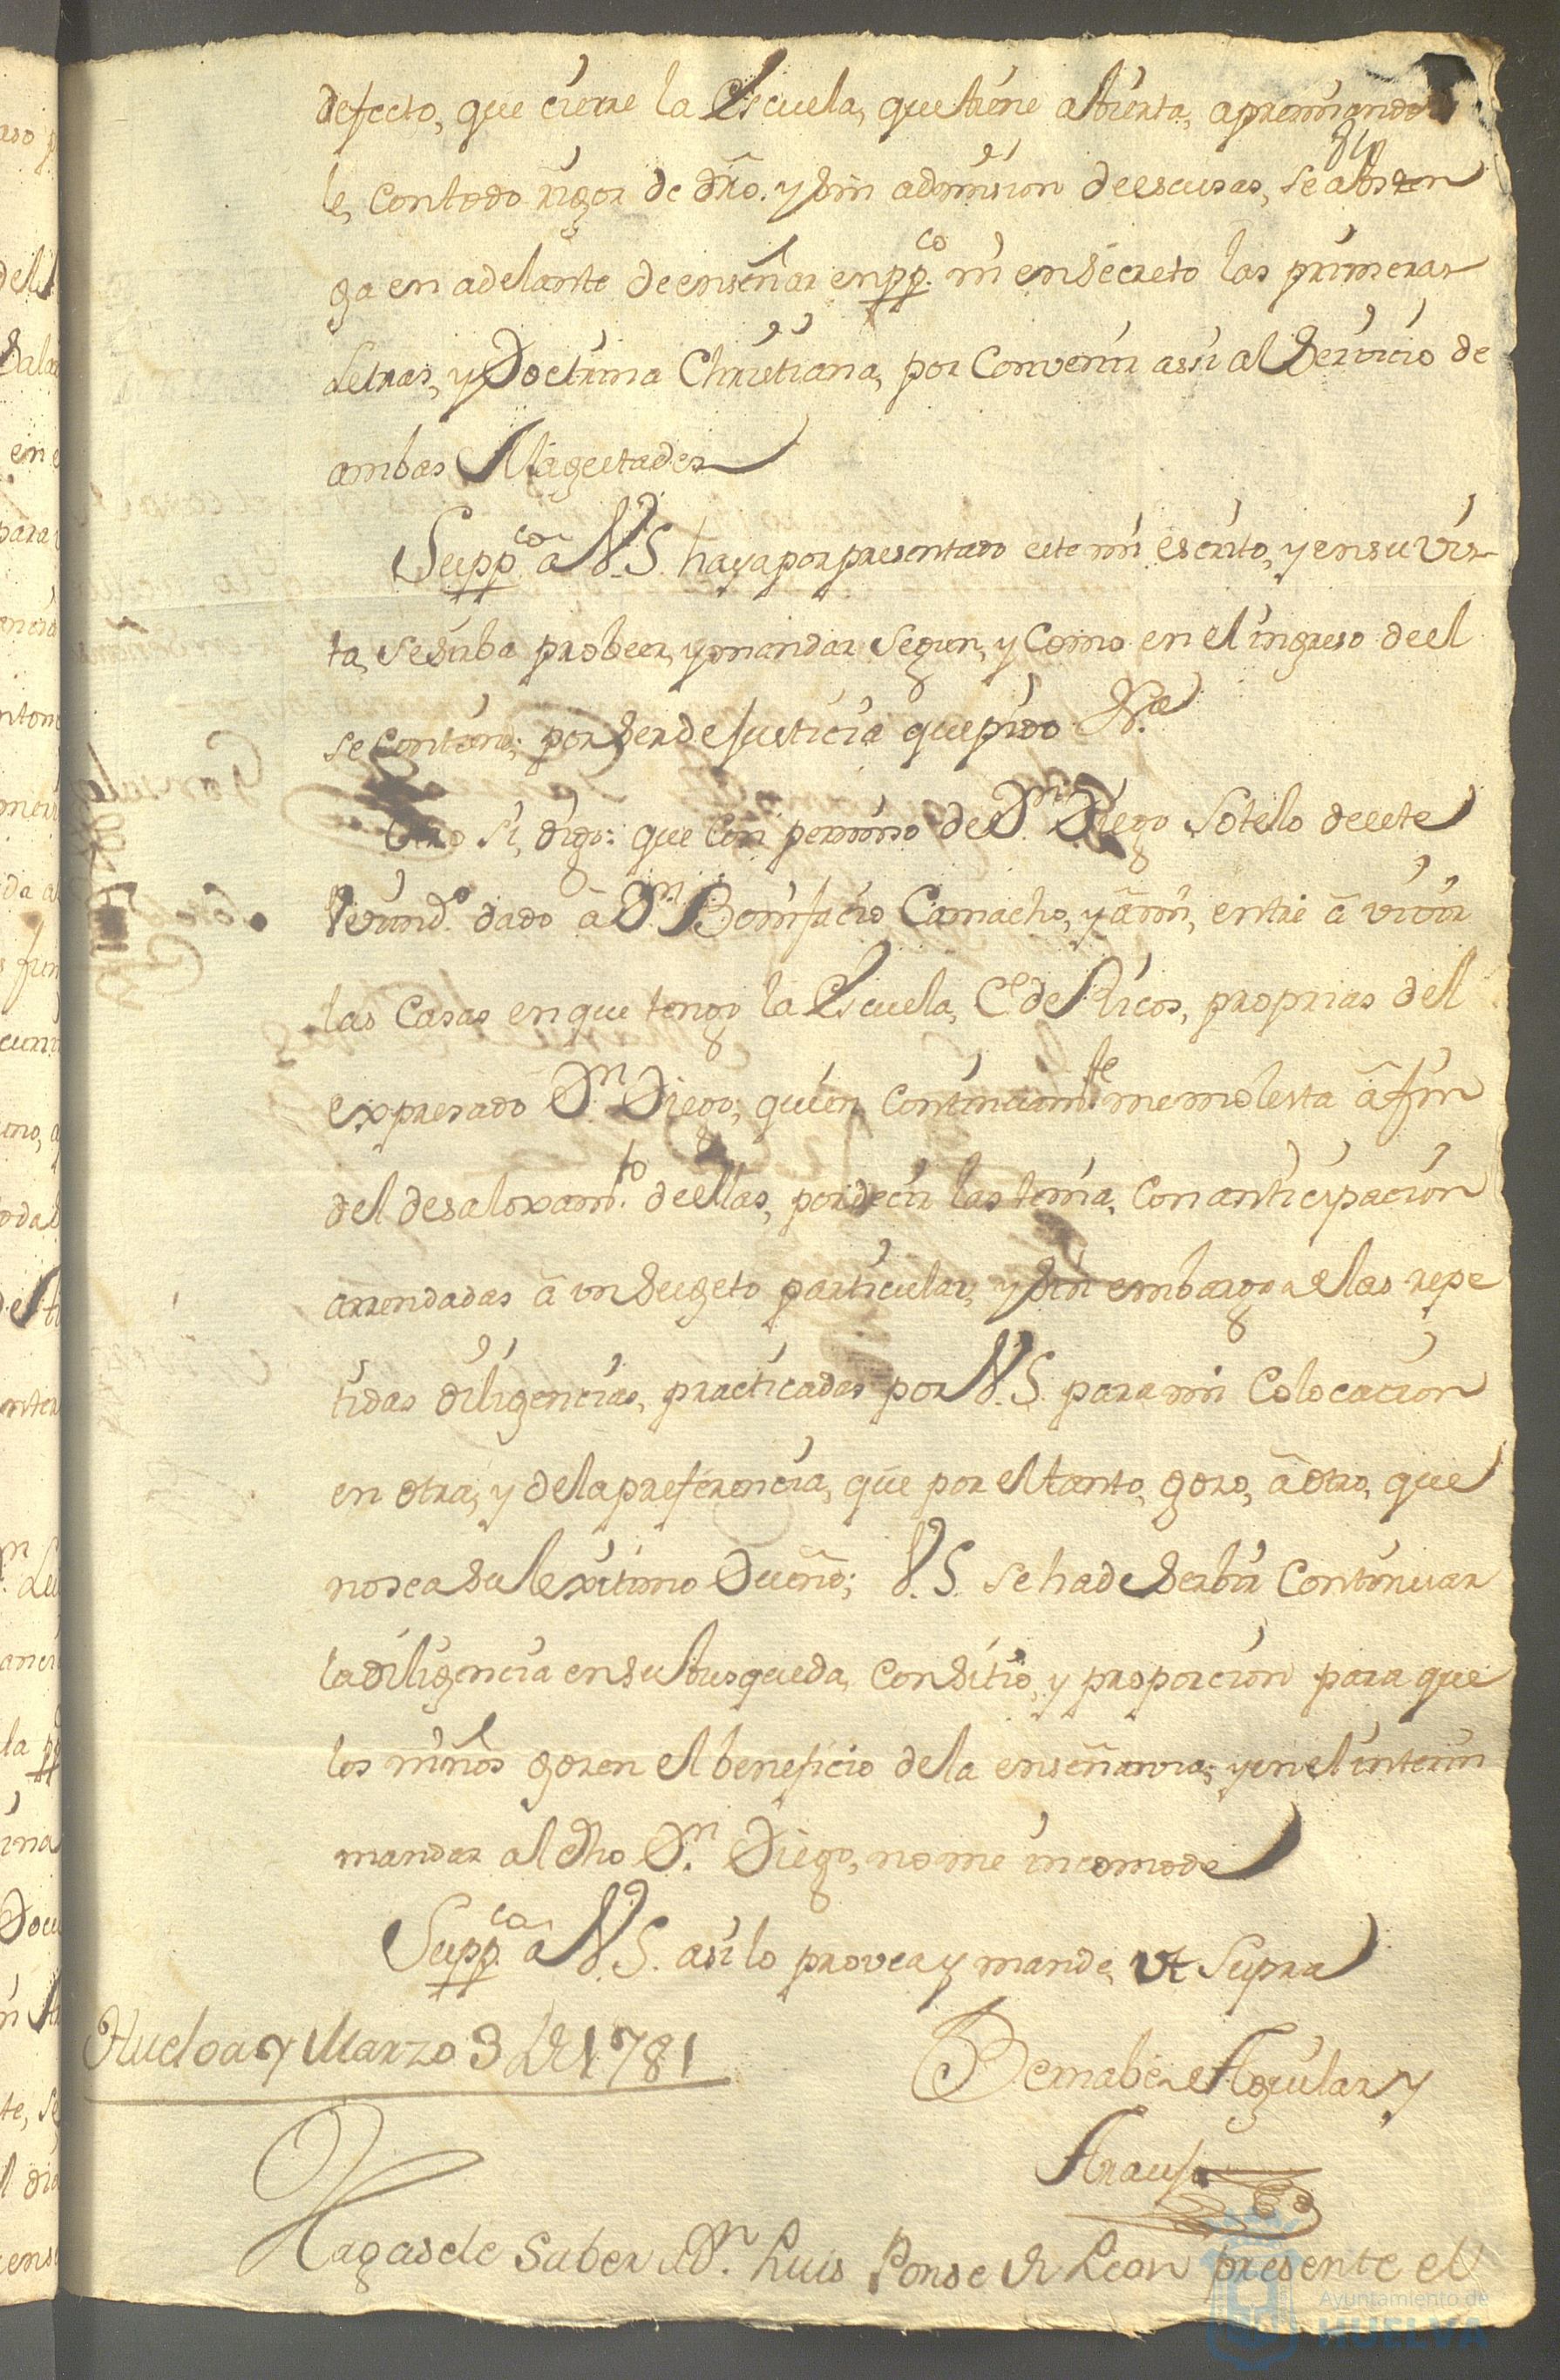 defecto, que cierre la Escuela, que tiene abierta, apremiando
le, con todo rigor de dr̃o. y sin admision de escusas, se absten
ga en adelante de enseñar en ppco. ni en secreto las primeras
Letras, y Doctrina Christiana, por convenir assi al Servicio de
ambas Magestades
Suppco. â V.S. haya por presentado este mi escrito, y en su vis-
ta, se sirba probeer, y mandar segun, y como en el ingreso de el
se contiene; por ser de Justicia que pido &a.
Otro si, digo: que con permiso de Dn. Diego Sotelo de este
Vecindo. dado â Dn. Bonifacio Camacho, y â mi, entre â vivir
las Casas en que tengo la Escuela, Ce. de Ricos, proprias del
expresado Dn. Diego, quien continuamte. me molesta â fin
del desaloxamto. de ellas, por decir las tenia, con anticipacion
arrendadas â un sugeto particular, y sin embargo de las repe
tidas diligencias, practicadas por V.S. para mi Colocacion
en otra, y de la preferencia, que por el tanto, gozo, â otro, que
no sea su lexitimo Dueño; V.S. se ha de serbir continuar
la diligencia en su busqueda, con sitio, y proporcion para que
los niños gozen el beneficio de la enseñanza; y en el interin
mandar al dho Dn. Diego, no me incomode
Suppco. â V.S. asi lo provea y mande, ut Supra
Huelva y Marzo 3 de 1781
Bernabe Aguilar y
Arauso
Hagasele saber a Dn. Luis Ponse de Leon presente el
Ayuntamiento de
HUELVA